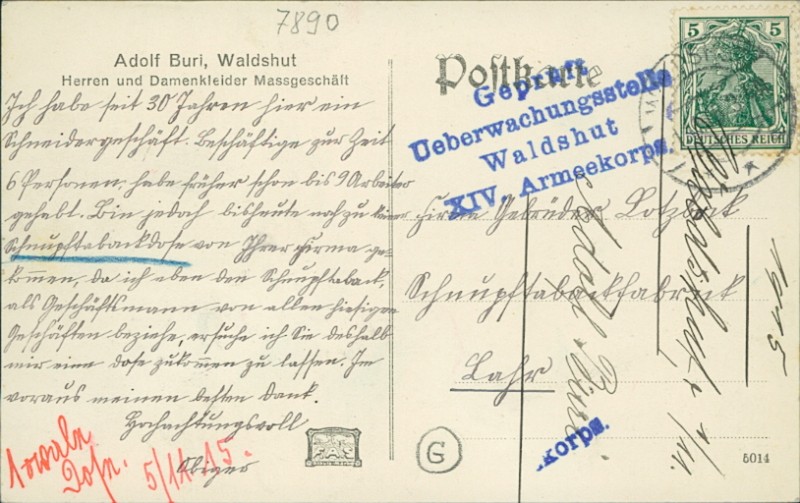 7890
Adolf Buri, Waldshut
Herren und Damenkleider Massgeschäft
Ich habe seit 30 Jahren hier ein
Schneidergeschäft. Beschäftige zur Zeit
6 Personen, habe früher schon bis 9 Arbeiter
gehabt. Bin jedoch bisheute noch zu keiner
Schnupftabackdose von Ihrer Firma ge-
kommen, da ich eben den Schnupftaback,
als Geschäftsmann von allen hiesigen
Geschäften beziehe, ersuche ich Sie deshalb
mir eine dose zukommen zu lassen. Im
voraus meinen besten Dank.
Hochachtungsvoll
Obiger
5/11. 15.
Postkarte
Geprüft
Ueberwachungsstelle
Waldshut
XIV. Armeekorps.
5
5
DEUTSCHES REICH
Firma Gebrüder Lotzbeck
Schnupftabackfabrick
Lahr
Adolf Buri
Waldshut
1/11.
1915
korps.
G
5014